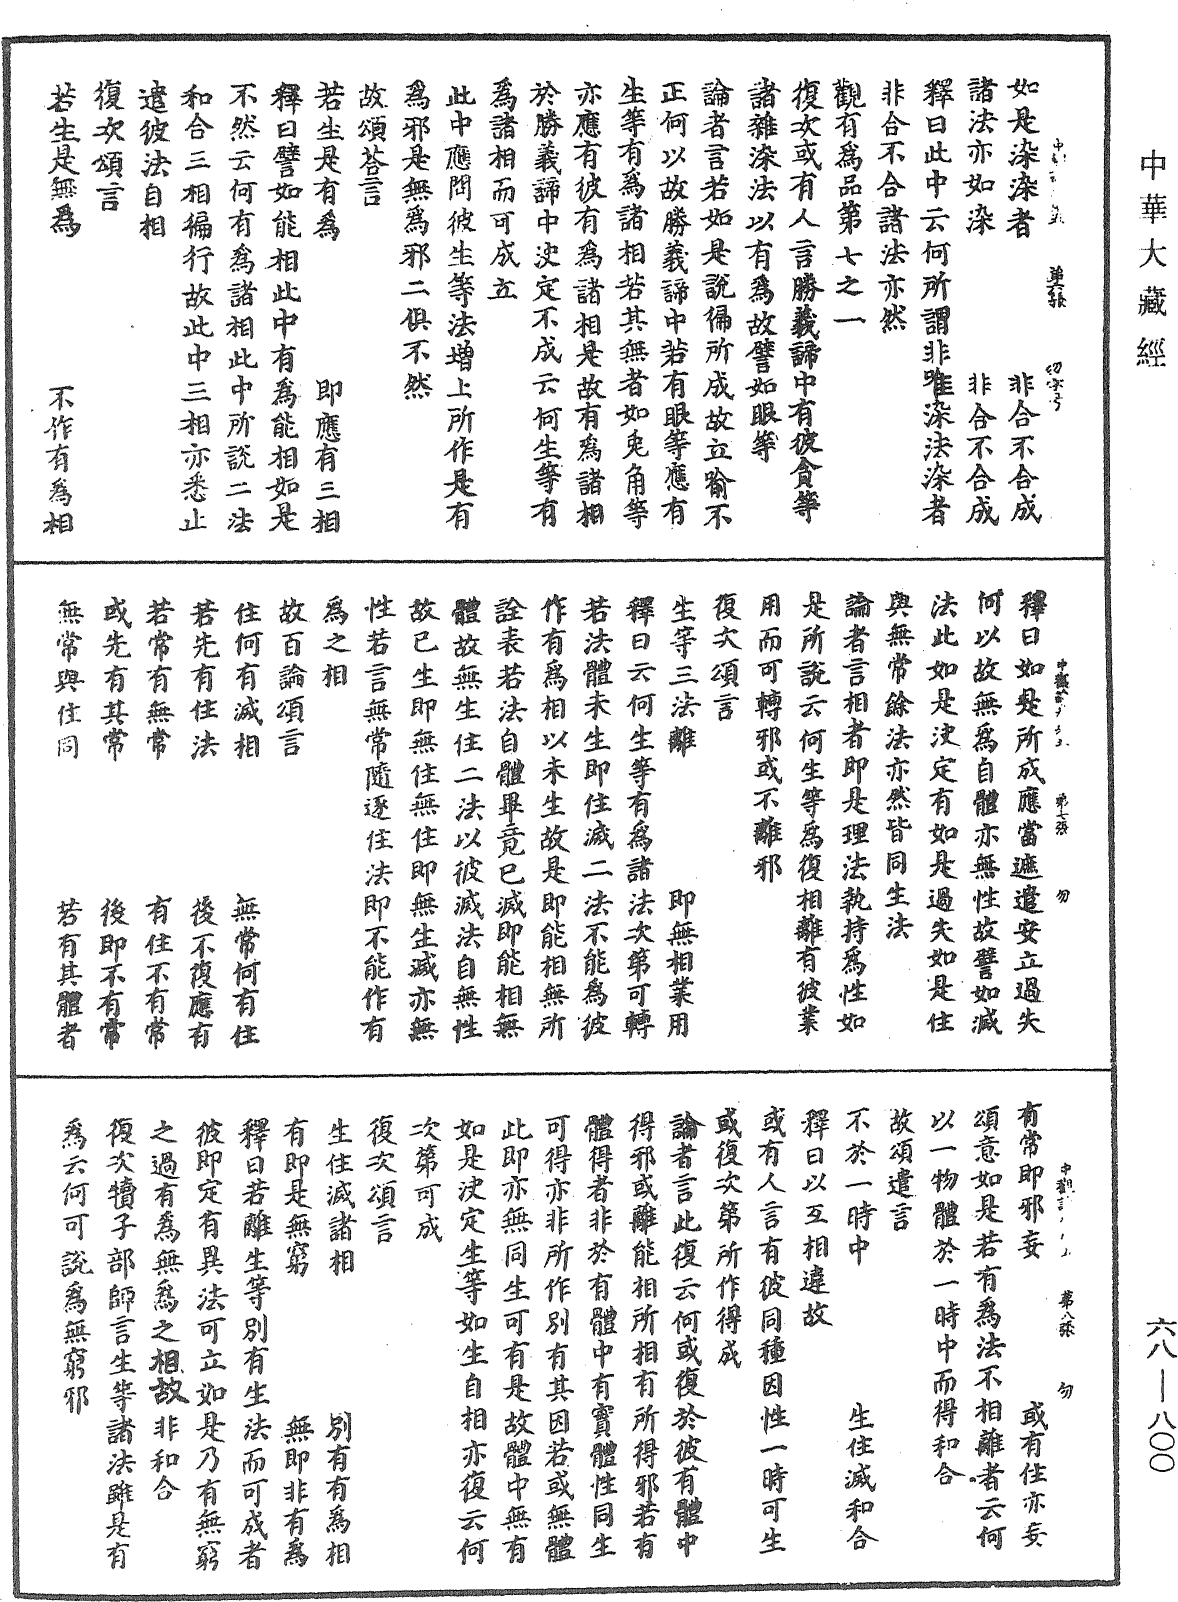 中華大藏經
如是染染者　非合不合成
諸法亦如染　非合不合成
釋曰此中云何所謂非唯染法染者
非合不合諸法亦然
觀有爲品第七之一
復次或有人言勝義諦中有彼貪等
諸雜染法以有爲故譬如眼等
論者言若如是說徧所成故立喻不
正何以故勝義諦中若有眼等應有
生等有爲諸相若其無者如兎角等
亦應有彼有爲諸相是故有爲諸相
於勝義諦中決定不成云何生等有
爲諸相而可成立
此中應問彼生等法增上所作是有
爲邪是無爲邪二俱不然
故頌荅言
若生是有爲　即應有三相
釋曰譬如能相此中有爲能相如是
不然云何有爲諸相此中所說二法
和合三相徧行故此中三相亦悉止
遣彼法自相
復次頌言
若生是無爲　不作有爲相
第七張　勿
釋曰如是所成應當遮遣安立過失
何以故無爲自體亦無性故譬如滅
法此如是決定有如是過失如是住
與無常餘法亦然皆同生法
論者言相者即是理法執持爲性如
是所說云何生等爲復相離有彼業
用而可轉邪或不離邪
復次頌言
生等三法離　即無相業用
釋曰云何生等有爲諸法次第可轉
若法體未生即住滅二法不能爲彼
作有爲相以未生故是即能相無所
詮表若法自體畢竟已滅即能相無
體故無生住二法以彼滅法自無性
故已生即無住無住即無生滅亦無
性若言無常隨逐住法即不能作有
爲之相
故百論頌言
住何有滅相　無常何有住
若先有住法　後不復應有
若常有無常　有住不有常
或先有其常　後即不有常
無常與住同　若有其體者
第八張　勿
有常即邪妄　或有住亦妄
頌意如是若有爲法不相離者云何
以一物體於一時中而得和合
故頌遣言
不於一時中　生住滅和合
釋曰以互相違故
或有人言有彼同種因性一時可生
或復次第所作得成
論者言此復云何或復於彼有體中
得邪或離能相所相有所得邪若有
體得者非於有體中有實體性同生
可得亦非所作別有其因若或無體
此即亦無同生可有是故體中無有
如是決定生等如生自相亦復云何
次第可成
復次頌言
生住滅諸相　別有有爲相
有即是無窮　無即非有爲
釋曰若離生等別有生法而可成者
彼即定有異法可立如是乃有無窮
之過有爲無爲之相故非和合
復次犢子部師言生等諸法雖是有
爲云何可說爲無窮邪
六八—八〇〇